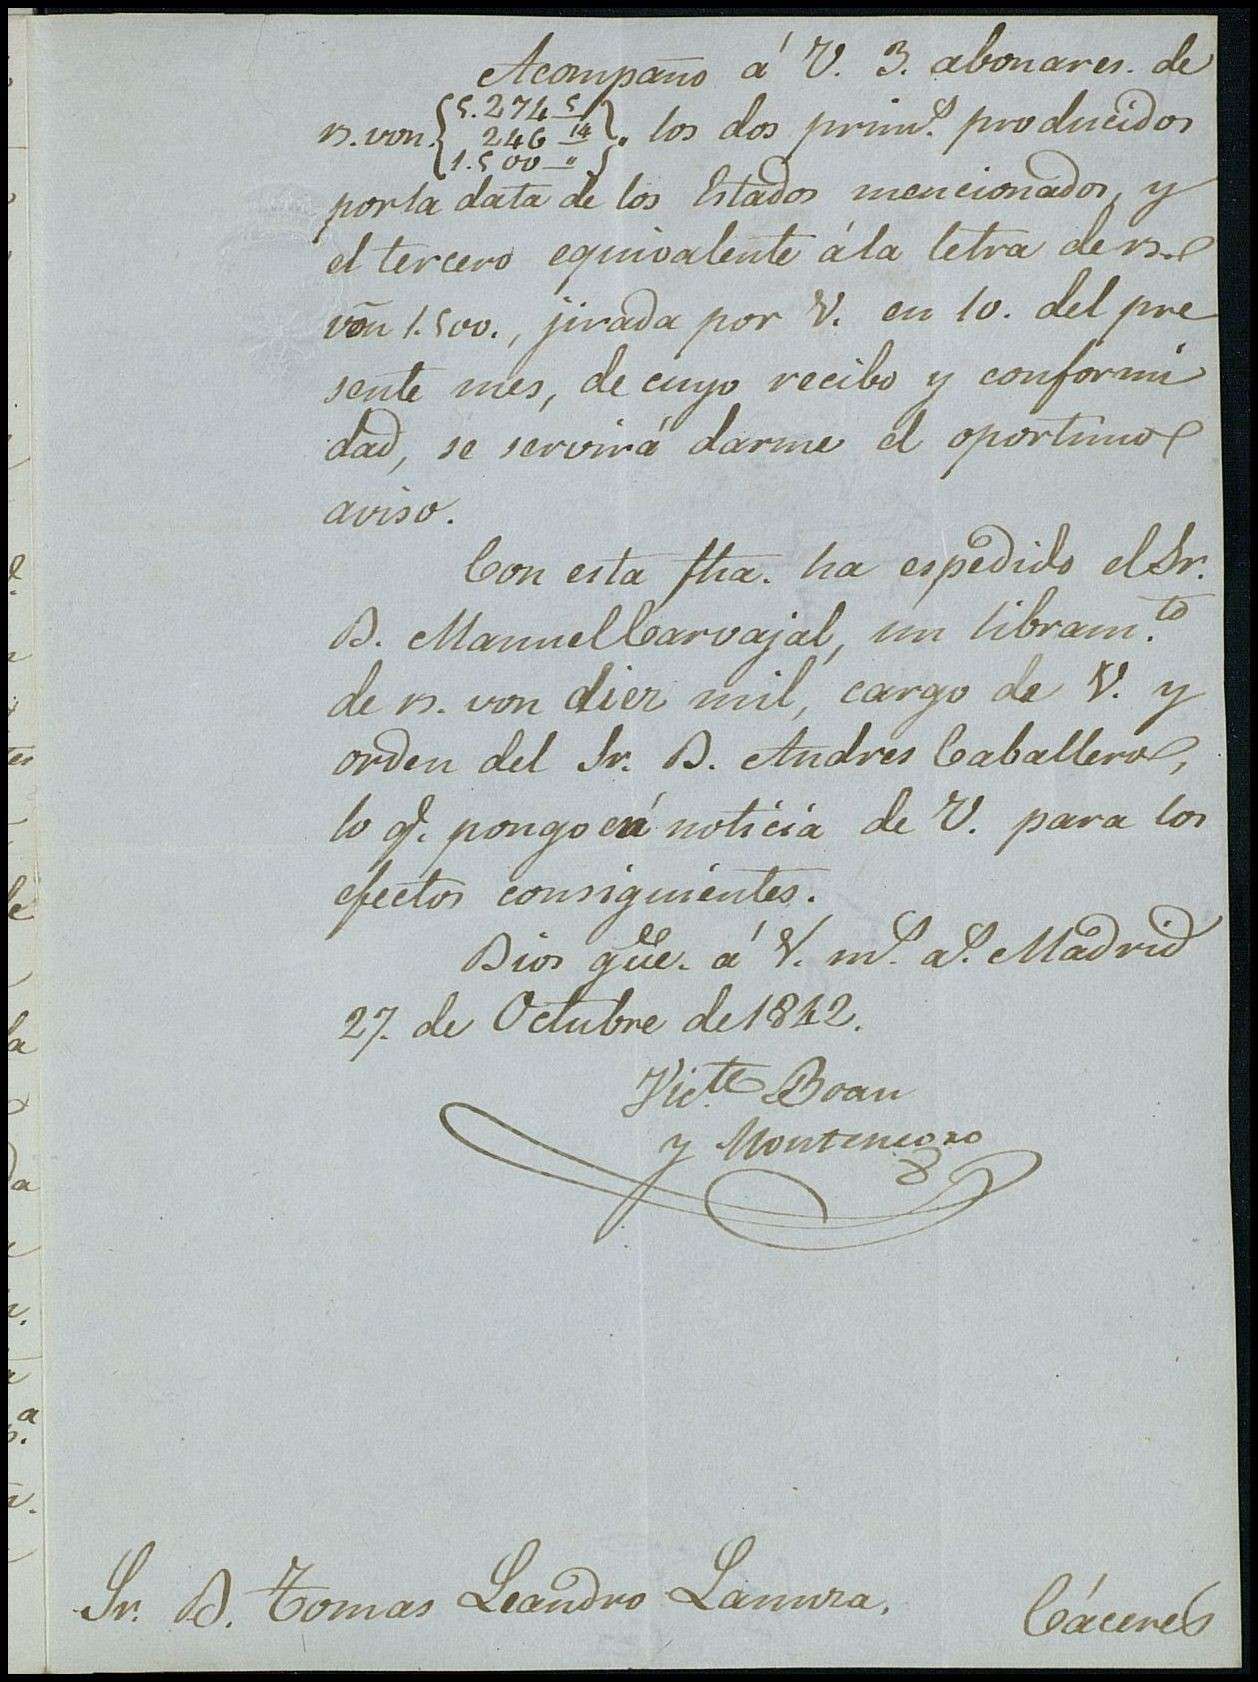 Acompaño á V. 3. abonares. de
rs. von. {5.274 5
246 14
1.500 "}. los dos prim.s producidos
por la data de los Estados mencionados, y
el tercero equivalente á la letra de rs.
von 1.500., jirada por V. en 10. del pre
sente mes, de cuyo recibo y conformi
dad, se servirá darme el oportuno
aviso.
Con esta fha. ha espedido el Sr.
D. Manuel Carvajal, un libram.to
de rs. von diez mil, cargo de V. y
orden del Sr. D. Andres Caballero,
lo q.e pongo en noticia de V. para los
efectos consiguientes.
Dios gue. á V. m.s a.s Madrid
27. de Octubre de 1842.
Vic.te Boan
y Montenegro
Sr. D. Tomas Leandro Lanuza. Cáceres